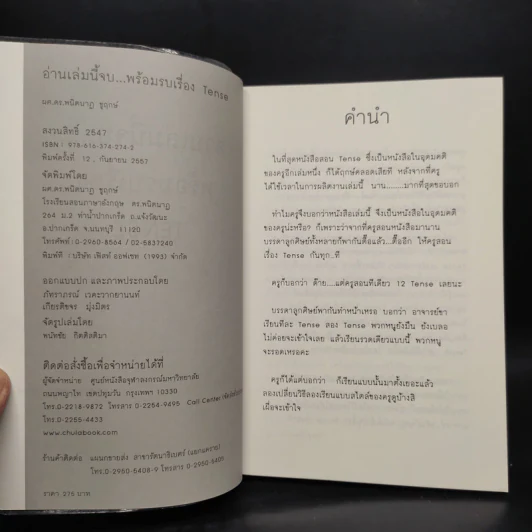 อ่านเล่มนี้จบ...พร้อมรบเรื่อง Tense
ผศ.ดร.พนิตนาฏ ชูฤกษ์
สงวนสิทธิ์ 2547
ISBN : 978-616-374-274-2
พิมพ์ครั้งที่ 12 , กันยายน 2557
จัดพิมพ์โดย
ผศ.ดร.พนิตนาฏ ชูฤกษ์
โรงเรียนสอนภาษาอังกฤษ ดร.พนิตนาฏ
264 ม.2 ท่าน้ำปากเกร็ด ถ.แจ้งวัฒนะ
อ.ปากเกร็ด จ.นนทบุรี 11120
โทรศัพท์ : 0-2960-8564 / 02-5837240
พิมพ์ที่ : บริษัท เฟิสท์ ออฟเซท (1993) จำกัด
ออกแบบปก และภาพประกอบโดย
ภัทราภรณ์
เกียรติขจร มุ่งมิตร
จัดรูปเล่มโดย
พนัทชัย กิตติสติมา
ติดต่อสั่งซื้อเพื่อจำหน่ายได้ที่
ผู้จัดจำหน่าย ศูนย์หนังสือจุฬาลงกรณ์มหาวิทยาลัย
ถนนพญาไท เขตปทุมวัน กรุงเทพฯ 10330
โทร.0-2218-9872 โทรสาร 0-2254-9495 Call Center
โทร.0-2255-4433
www.chulabook.com
ร้านค้าติดต่อ แผนกขายส่ง สาขารัตนาธิเบศร์ (แยกแคราย)
โทร.0-2950-5408-9 โทรสาร 0-2950-5405
ราคา 275 บาท
คำนำ
ในที่สุดหนังสือสอน Tense ซึ่งเป็นหนังสือในอุดมคติ
ของครูอีกเล่มหนึ่ง ก็ได้ฤกษ์คลอดเสียที หลังจากที่ครู
ได้ใช้เวลาในการผลิตงานเล่มนี้ นาน........มากที่สุดขอบอก
ทำไมครูจึงบอกว่าหนังสือเล่มนี้ จึงเป็นหนังสือในอุดมคติ
ของครูน่ะหรือ? ก็เพราะว่าจากที่ครูสอนหนังสือมานาน
บรรดาลูกศิษย์ทั้งหลายก็พากันตื๊อแล้ว...ตื๊ออีก ให้ครูสอน
เรื่อง Tense กันทุก..ที
ครูก็บอก ด๊าย....แต่ครูสอนทีเดียว 12 Tense เลยนะ
บรรดาลูกศิษย์พากันทำหน้าเหรอ บอกว่า อาจารย์ขา
เรียนทีละ Tense สอง Tense พวกหนูยังมึน ยังเบลอ
ไม่ค่อยจะเข้าใจเลย แล้วเรียนรวดเดียวแบบนี้ พวกหนู
จะรอดเหรอคะ
ครูก็ได้แต่บอกว่า ก็เรียนแบบนั้นมาตั้งเยอะแล้ว
ลองเปลี่ยนวิธีลองเรียนแบบสไตล์ของครูดูบ้างสิ
เผื่อจะเข้าใจ